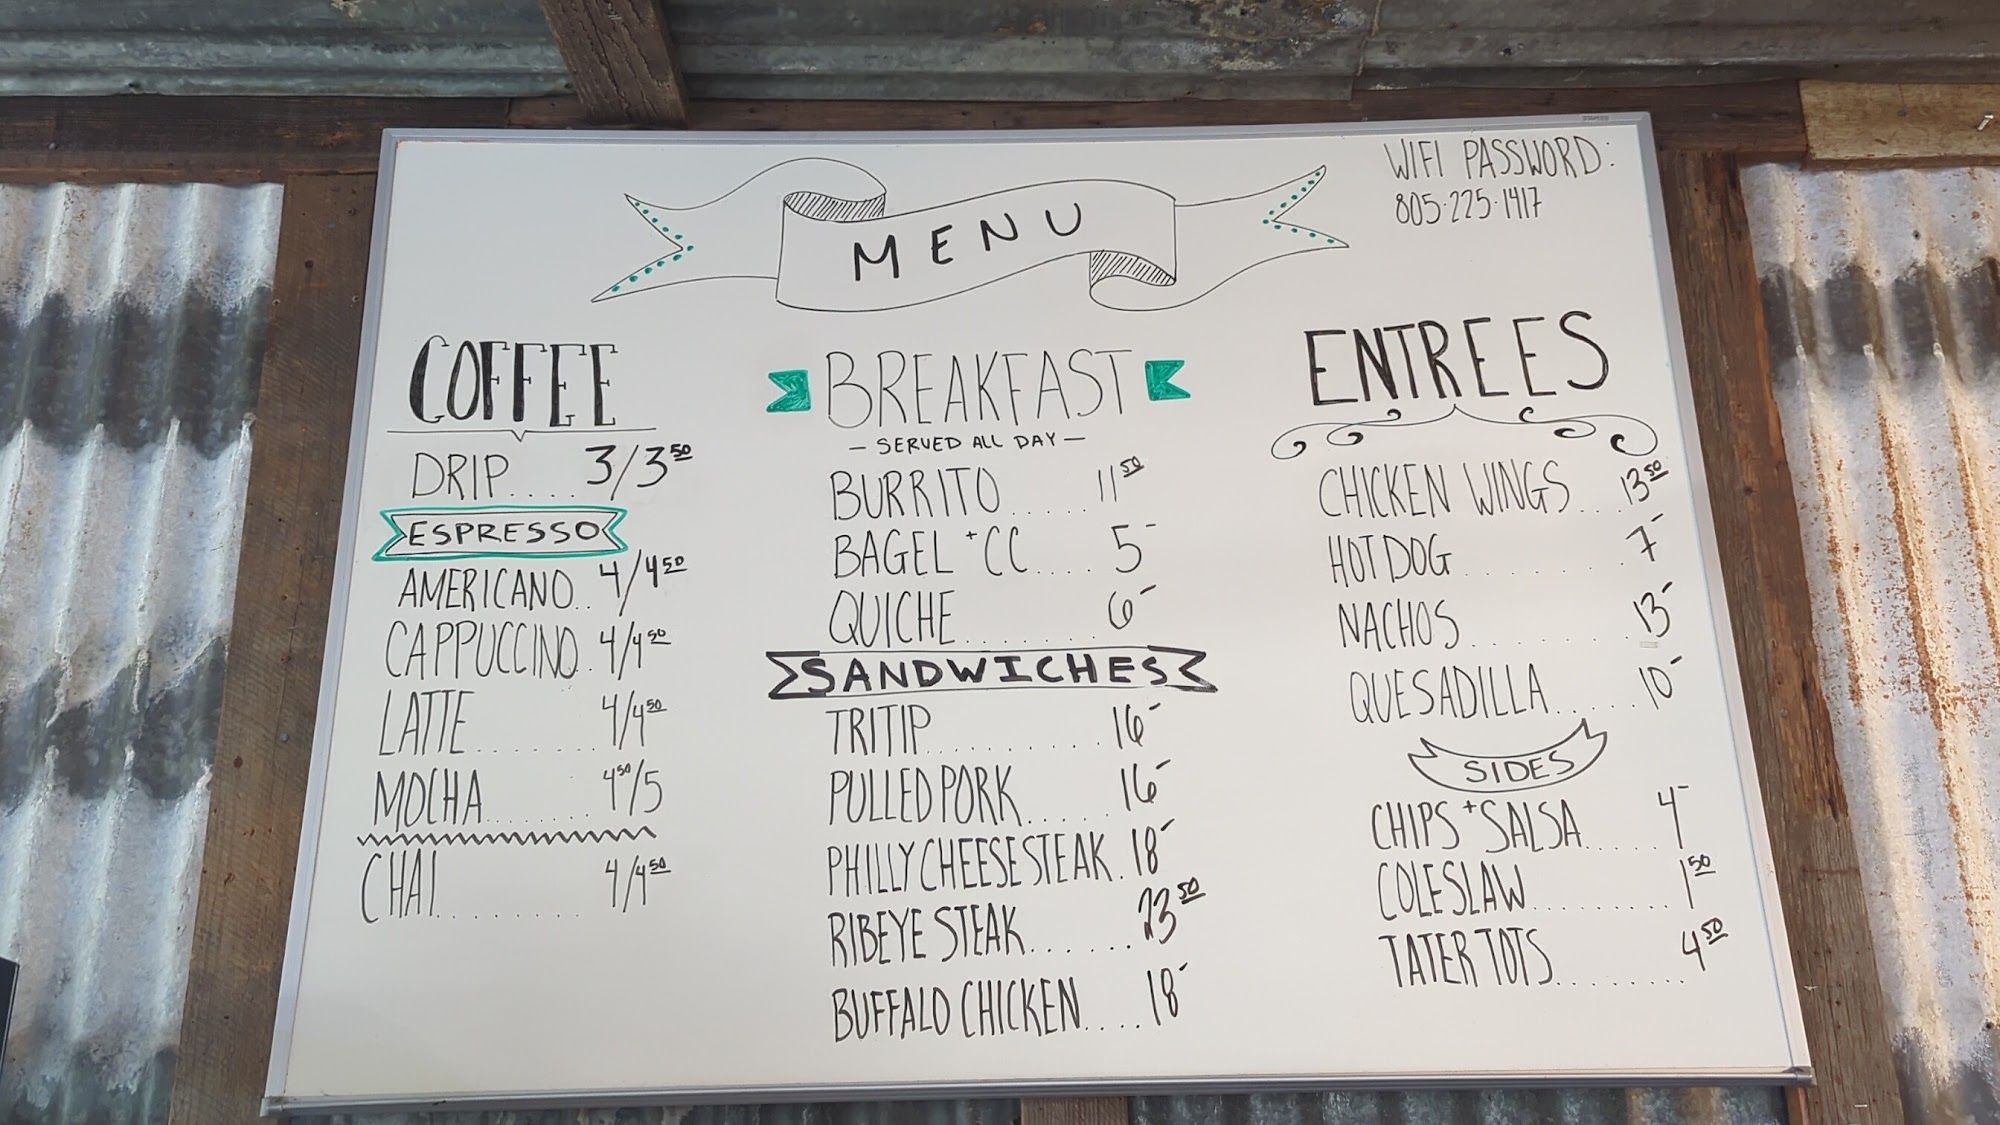 MENU
WIFI PASSWORD:
805·225·1417
COFFEE
DRIP.... 3/3 50
ESPRESSO
AMERICANO.. 4/4 50
CAPPUCCINO.. 4/4 50
LATTE........ 4/4 50
MOCHA....... 4 50/5
CHAI......... 4/4 50
BREAKFAST
— SERVED ALL DAY —
BURRITO..... 11 50
BAGEL + CC.... 5-
QUICHE....... 6-
SANDWICHES
TRITIP.......... 16-
PULLED PORK..... 16-
PHILLY CHEESE STEAK. 18-
RIBEYE STEAK...... 23 50
BUFFALO CHICKEN.... 18-
ENTREES
CHICKEN WINGS... 13 50
HOT DOG......... 7-
NACHOS......... 13-
QUESADILLA..... 10-
SIDES
CHIPS + SALSA..... 4-
COLESLAW......... 1 50
TATER TOTS........ 4 50